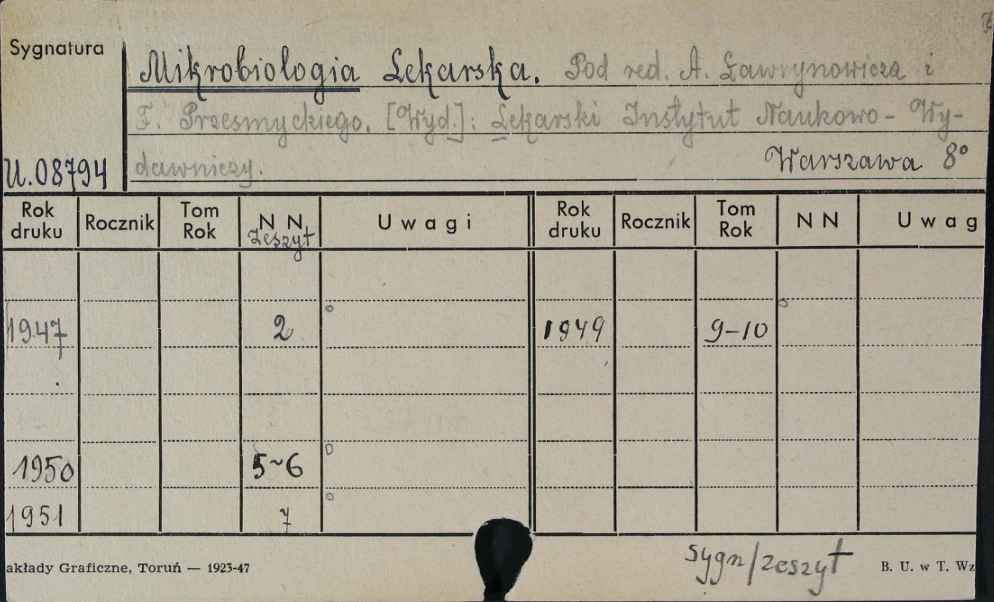 Sygnatura
Mikrobiologia Lekarska. Pod red. A. Ławrynowicza i
F. Przesmyckiego. [Wyd.]: Lekarski Instytut Naukowo-Wy-
dawniczy. Warszawa 8°
U.08794
Rok druku Rocznik Tom Rok N N Zeszyt Uwagi Rok druku Rocznik Tom Rok N N Uwag
1947 2 1949 9-10
1950 5-6
1951 7
akłady Graficzne, Toruń — 1923-47
sygn/zeszyt
B. U. w T. Wz